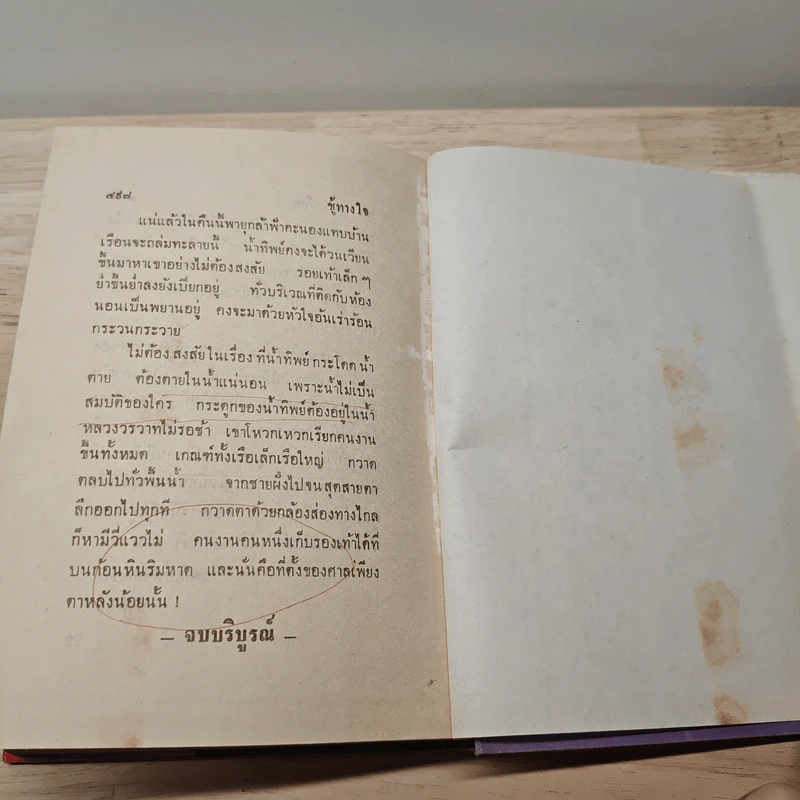 ๔๙๘
ชู้ทางใจ
แน่แล้วในคืนนี้พายุกล้าฟ้าคะนองแทบบ้าน
เรือนจะถล่มทะลายนี้ น้ำทิพย์คงจะได้วนเวียน
ขึ้นมาหาเขาอย่างไม่ต้องสงสัย รอยเท้าเล็ก ๆ
ย่ำขึ้นย่ำลงยังเปียกอยู่ ทั่วบริเวณที่ติดกับห้อง
นอนเป็นพยานอยู่ คงจะมาด้วยหัวใจอันเร่าร้อน
กระวนกระวาย
ไม่ต้อง สงสัย ในเรื่อง ที่น้ำทิพย์ กระโดด น้ำ
ตาย ต้องตายในน้ำแน่นอน เพราะน้ำไม่เป็น
สมบัติของใคร กระดูกของน้ำทิพย์ต้องอยู่ในน้ำ
หลวงวรวาทไม่รอช้า เขาโหวกเหวกเรียกคนงาน
ขึ้นทั้งหมด เกณฑ์ทั้งเรือเล็กเรือใหญ่ กวาด
ตลบไปทั่วพื้นน้ำ จากชายฝั่งไปจนสุดสายตา
ลึกออกไปทุกที กวาดตาด้วยกล้องส่องทางไกล
ก็หามีวี่แววไม่ คนงานคนหนึ่งเก็บรองเท้าได้ที่
บนก้อนหินริมหาด และนั่นคือที่ตั้งของศาลเพียง
ตาหลังน้อยนั้น !
— จบบริบูรณ์ —